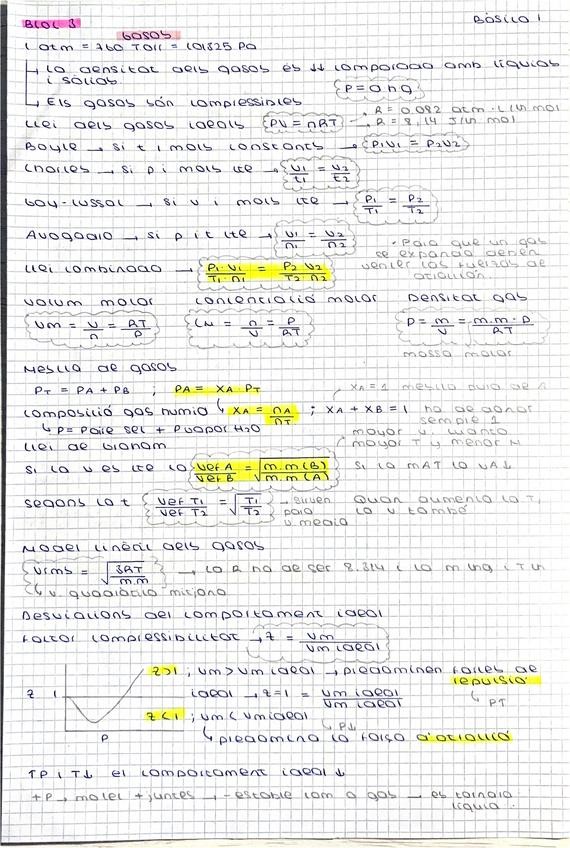 BLOC 3
Bàsica 1
GASOS
1 atm = 760 Torr = 101325 Pa
La densitat dels gasos és ↓↓ comparada amb líquids
i sòlids
Els gasos són compressibles
P = d h g
Llei dels gasos ideals PV = nRT
R = 0.082 atm·L/K mol
R = 8,14 J/K mol
Boyle → si t i mols constants → P1V1 = P2V2
Charles → si p i mols cte → V1/t1 = V2/t2
Gay-Lussac → si v i mols cte → P1/T1 = P2/T2
Avogadro → si p i t cte → V1/n1 = V2/n2
· Para que un gas
se expanda deben
vencer las fuerzas de
atracción.
Llei combinada → P1·V1/T1·n1 = P2 V2/T2 n2
Volum molar Concentració molar Densitat gas
Vm = V/n = RT/P
= n/V = P/RT
D = m/V = m.m·P/RT
massa molar
Mescla de gasos
PT = PA + PB ; PA = XA PT
XA = 1 mescla pura de A
Composició gas humid XA = nA/nT ; XA + XB = 1 ha de donar
sempre 1
↳ P = Paire sec + Pvapor H2O
Llei de Graham
mayor v. cuanto
mayor T y menor M
Si la v es cte la vef A/vef B = √m.m(B)/m.m(A) Si la mA↑ la vA↓
Segons la t vef T1/vef T2 = √T1/T2 → sirven
para
v media
Quan augmenta la T,
la v també
Model cinètic dels gasos
vrms = √3RT/m.m → la R ha de ser 8.314 i la m en kg i T en K
↳ v. quadràtica mitjana
Desviacions del comportament ideal
Factor compressibilitat → z = Vm/Vm ideal
z>1 ; Vm > Vm ideal → predominen forces de
repulsió
↳ P↑
z 1
ideal → z=1 = Vm ideal/Vm ideal
z<1 ; Vm < Vm ideal
↳ P↓
P
↳ predomina la força d'atracció
↑P i T↓ el comportament ideal ↓
+P → molec + juntes → - estable com a gas → es tornarà
líquid.